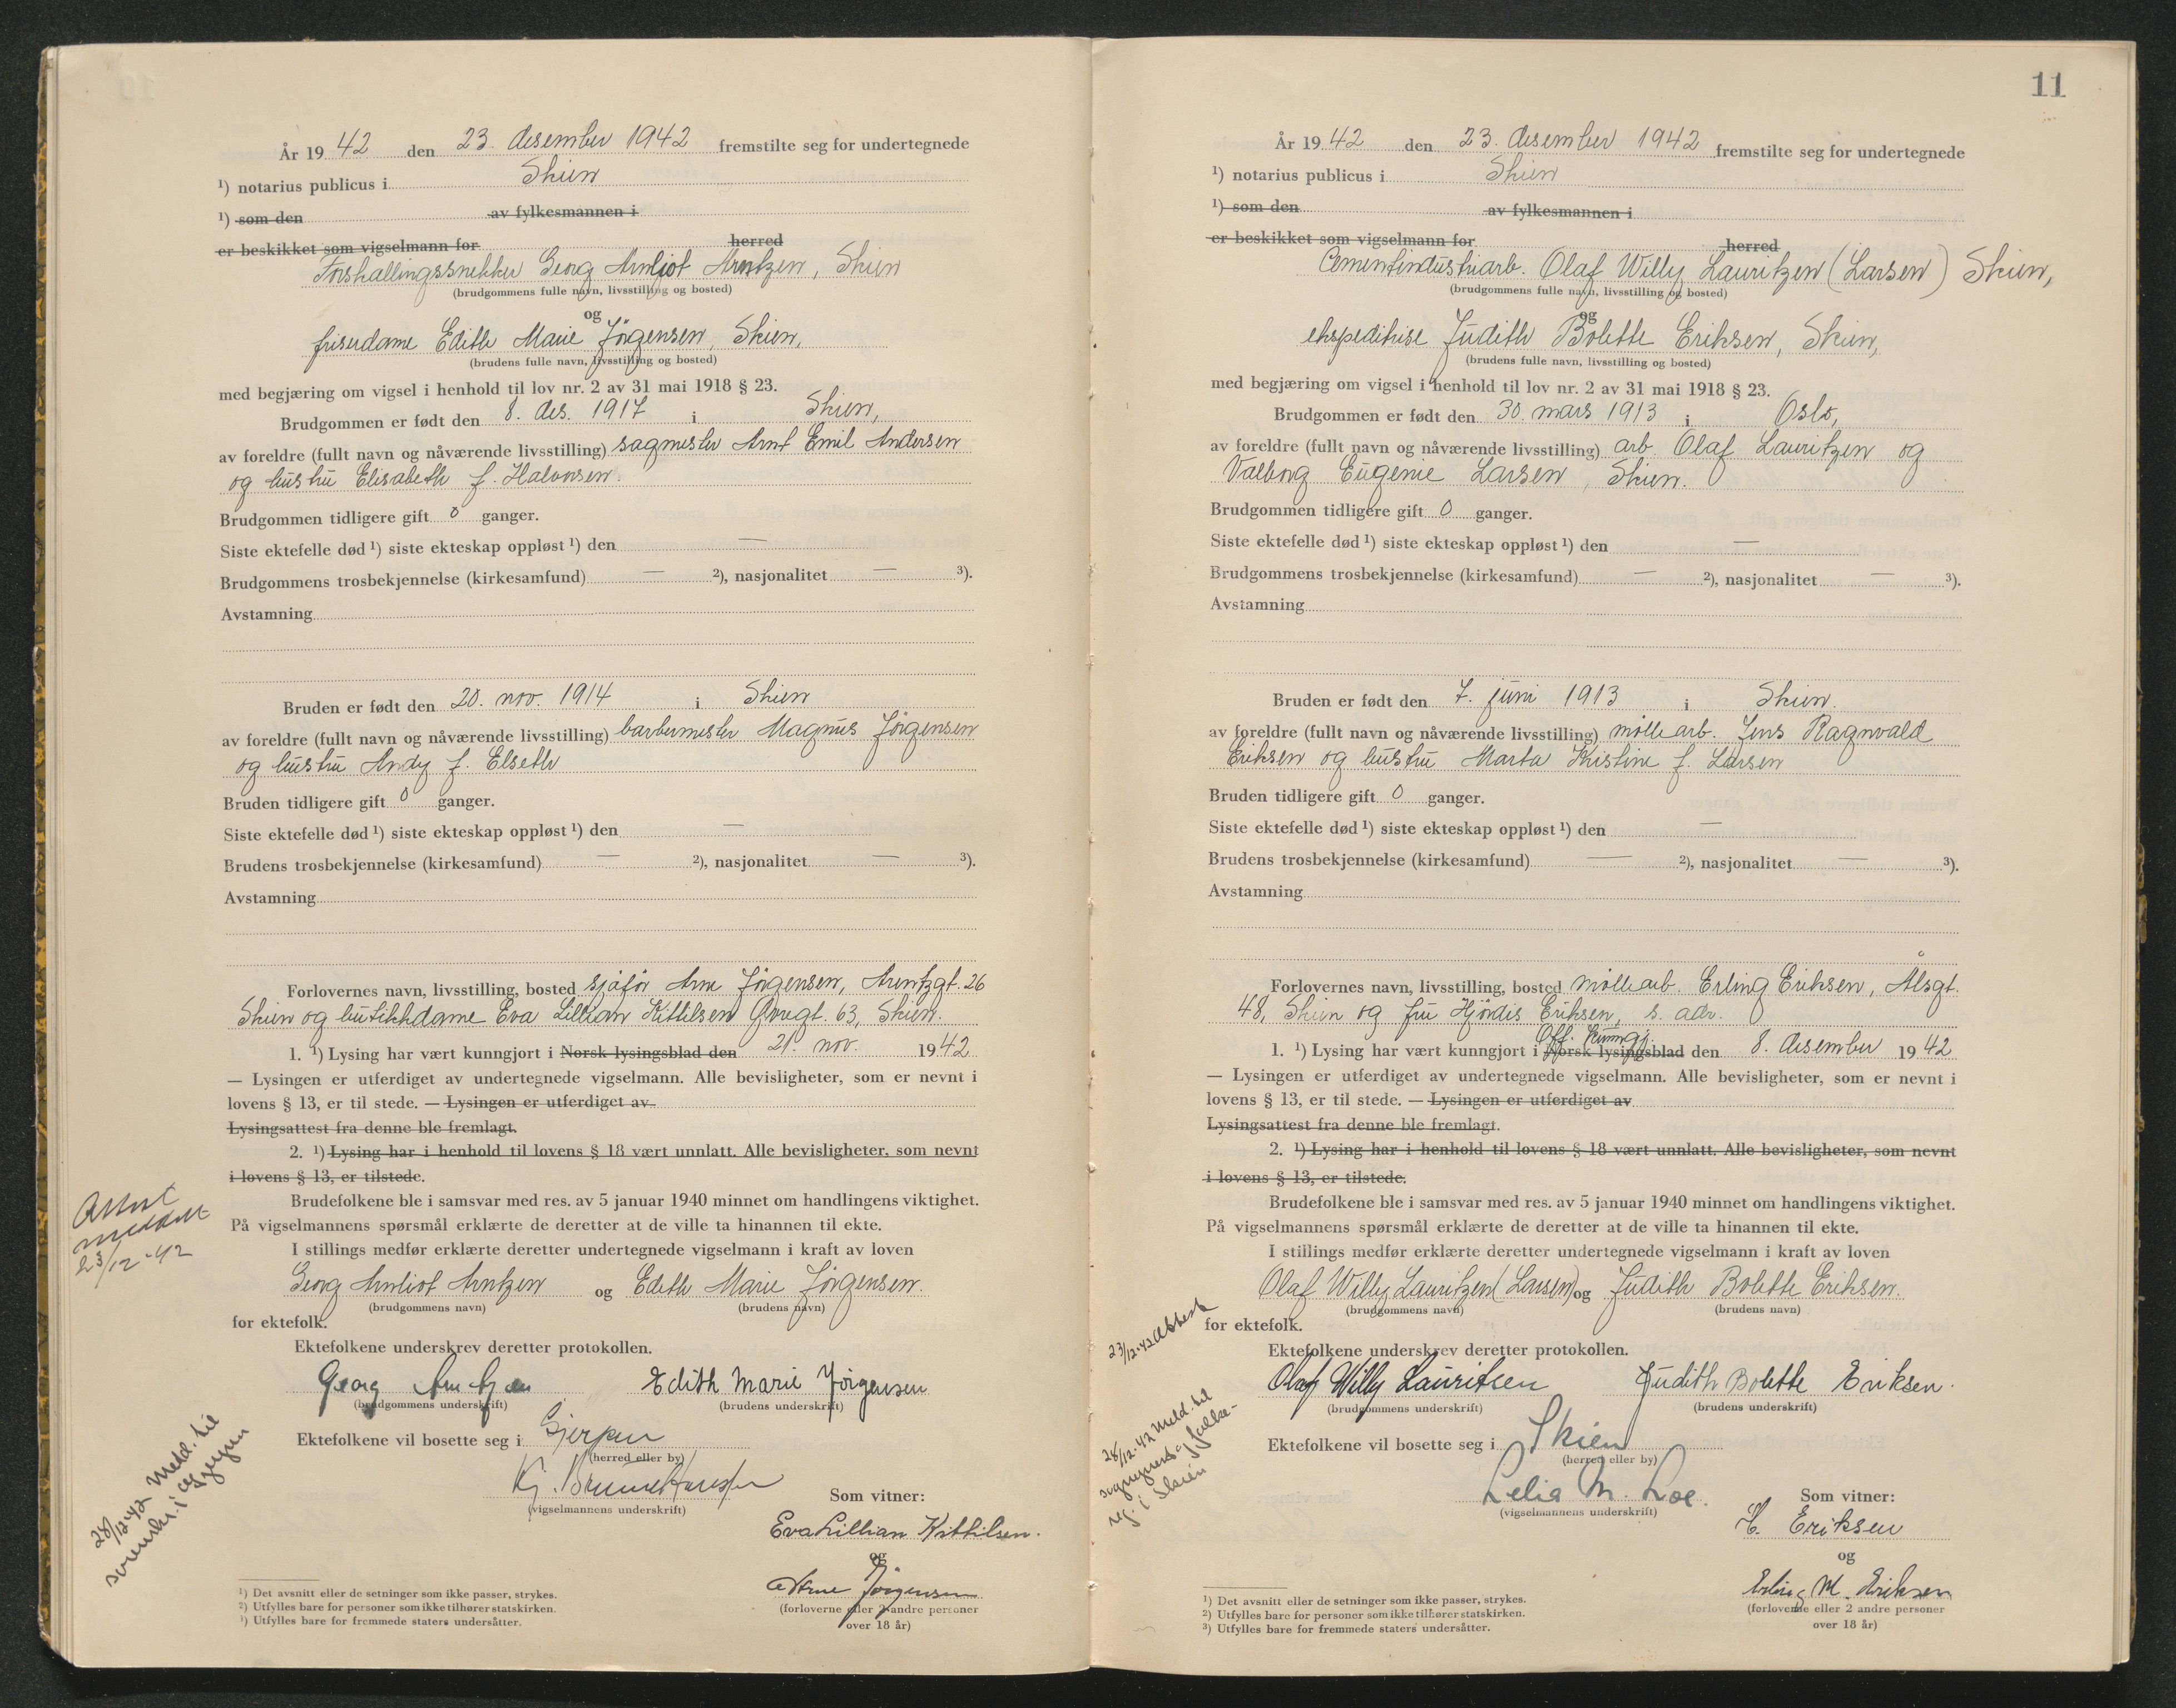 År 19 42 den 23. desember 1942 fremstilte seg for undertegnede
¹) notarius publicus i Skien
¹) som den av fylkesmannen i
er beskikket som vigselmann for herred
Forskallingssnekker Georg Arnljot Arntzen, Skien
(brudgommens fulle navn, livsstilling og bosted)
og
friserdame Edith Marie Jörgensen, Skien,
(brudens fulle navn, livsstilling og bosted)
med begjæring om vigsel i henhold til lov nr. 2 av 31 mai 1918 § 23.
Brudgommen er født den 8. des. 1917 i Skien,
av foreldre (fullt navn og nåværende livsstilling) sagmester Arnt Emil Andersen
og hustru Elisabeth f. Halvorsen.
Brudgommen tidligere gift 0 ganger.
Siste ektefelle død ¹) siste ekteskap oppløst ¹) den —
Brudgommens trosbekjennelse (kirkesamfund) — ²), nasjonalitet — ³).
Avstamning
Bruden er født den 20. nov. 1914 i Skien
av foreldre (fullt navn og nåværende livsstilling) barbermester Magnus Jörgensen
og hustru Andy f. Elseth
Bruden tidligere gift 0 ganger.
Siste ektefelle død ¹) siste ekteskap oppløst ¹) den —
Brudens trosbekjennelse (kirkesamfund) — ²), nasjonalitet — ³).
Avstamning
Forlovernes navn, livsstilling, bosted sjåför Arne Jörgensen, Arentzgt. 26
Skien og butikkdame Eva Lillian Kittilsen 63, Skien.
1. ¹) Lysing har vært kunngjort i Norsk lysingsblad den 21. nov. 19 42
— Lysingen er utferdiget av undertegnede vigselmann. Alle bevisligheter, som er nevnt i
lovens § 13, er til stede. — Lysingen er utferdiget av
Lysingsattest fra denne ble fremlagt.
2. ¹) Lysing har i henhold til lovens § 18 vært unnlatt. Alle bevisligheter, som nevnt
i lovens § 13, er tilstede.
Brudefolkene ble i samsvar med res. av 5 januar 1940 minnet om handlingens viktighet.
På vigselmannens spørsmål erklærte de deretter at de ville ta hinannen til ekte.
I stillings medfør erklærte deretter undertegnede vigselmann i kraft av loven
Georg Arnljot Arntzen og Edith Marie Jörgensen.
(brudgommens navn) (brudens navn)
for ektefolk.
Ektefolkene underskrev deretter protokollen.
Georg Arntzen Edith Marie Jörgensen
(brudgommens underskrift) (brudens underskrift)
Ektefolkene vil bosette seg i Gjerpen
(herred eller by)
(vigselmannens underskrift)
Som vitner:
Eva Lillian Kittilsen.
og
Arne Jörgensen
(forloverne eller 2 andre personer
over 18 år)
Attest
meddelt
23/12-42
28/12-42 Meld. til
¹) Det avsnitt eller de setninger som ikke passer, strykes.
²) Utfylles bare for personer som ikke tilhører statskirken.
³) Utfylles bare for fremmede staters undersåtter.
11
År 19 42 den 23. desember 1942 fremstilte seg for undertegnede
¹) notarius publicus i Skien
¹) som den av fylkesmannen i
er beskikket som vigselmann for herred
Cementindustriarb. Olaf Willy Lauritzen (Larsen) Skien,
(brudgommens fulle navn, livsstilling og bosted)
og
ekspeditrise Judith Bolette Eriksen, Skien,
(brudens fulle navn, livsstilling og bosted)
med begjæring om vigsel i henhold til lov nr. 2 av 31 mai 1918 § 23.
Brudgommen er født den 30. mars 1913 i Oslo,
av foreldre (fullt navn og nåværende livsstilling) arb. Olaf Lauritzen og
Valborg Eugenie Larsen, Skien.
Brudgommen tidligere gift 0 ganger.
Siste ektefelle død ¹) siste ekteskap oppløst ¹) den —
Brudgommens trosbekjennelse (kirkesamfund) — ²), nasjonalitet — ³).
Avstamning
Bruden er født den 7. juni 1913 i Skien.
av foreldre (fullt navn og nåværende livsstilling) möllearb. Jens Ragnvald
Eriksen og hustru Marta Kristine f. Larsen
Bruden tidligere gift 0 ganger.
Siste ektefelle død ¹) siste ekteskap oppløst ¹) den —
Brudens trosbekjennelse (kirkesamfund) — ²), nasjonalitet — ³).
Avstamning
Forlovernes navn, livsstilling, bosted möllearb. Erling Eriksen, Ålsgt.
48, Skien og fru Hjördis Eriksen, s. adr.
Off. Kunngj.
1. ¹) Lysing har vært kunngjort i Norsk lysingsblad den 8. desember 19 42
— Lysingen er utferdiget av undertegnede vigselmann. Alle bevisligheter, som er nevnt i
lovens § 13, er til stede. — Lysingen er utferdiget av
Lysingsattest fra denne ble fremlagt.
2. ¹) Lysing har i henhold til lovens § 18 vært unnlatt. Alle bevisligheter, som nevnt
i lovens § 13, er tilstede.
Brudefolkene ble i samsvar med res. av 5 januar 1940 minnet om handlingens viktighet.
På vigselmannens spørsmål erklærte de deretter at de ville ta hinannen til ekte.
I stillings medfør erklærte deretter undertegnede vigselmann i kraft av loven
Olaf Willy Lauritzen (Larsen) og Judith Bolette Eriksen.
(brudgommens navn) (brudens navn)
for ektefolk.
Ektefolkene underskrev deretter protokollen.
Olaf Willy Lauritsen Judith Bolette Eriksen.
(brudgommens underskrift) (brudens underskrift)
Ektefolkene vil bosette seg i Skien
(herred eller by)
Lelia M. Loe.
(vigselmannens underskrift)
Som vitner:
H. Eriksen
og
Erling M. Eriksen
(forloverne eller 2 andre personer
over 18 år)
23/12-42 Attest
28/12-42 Meld. til
sogneprest og folke-
reg. i Skien
¹) Det avsnitt eller de setninger som ikke passer, strykes.
²) Utfylles bare for personer som ikke tilhører statskirken.
³) Utfylles bare for fremmede staters undersåtter.